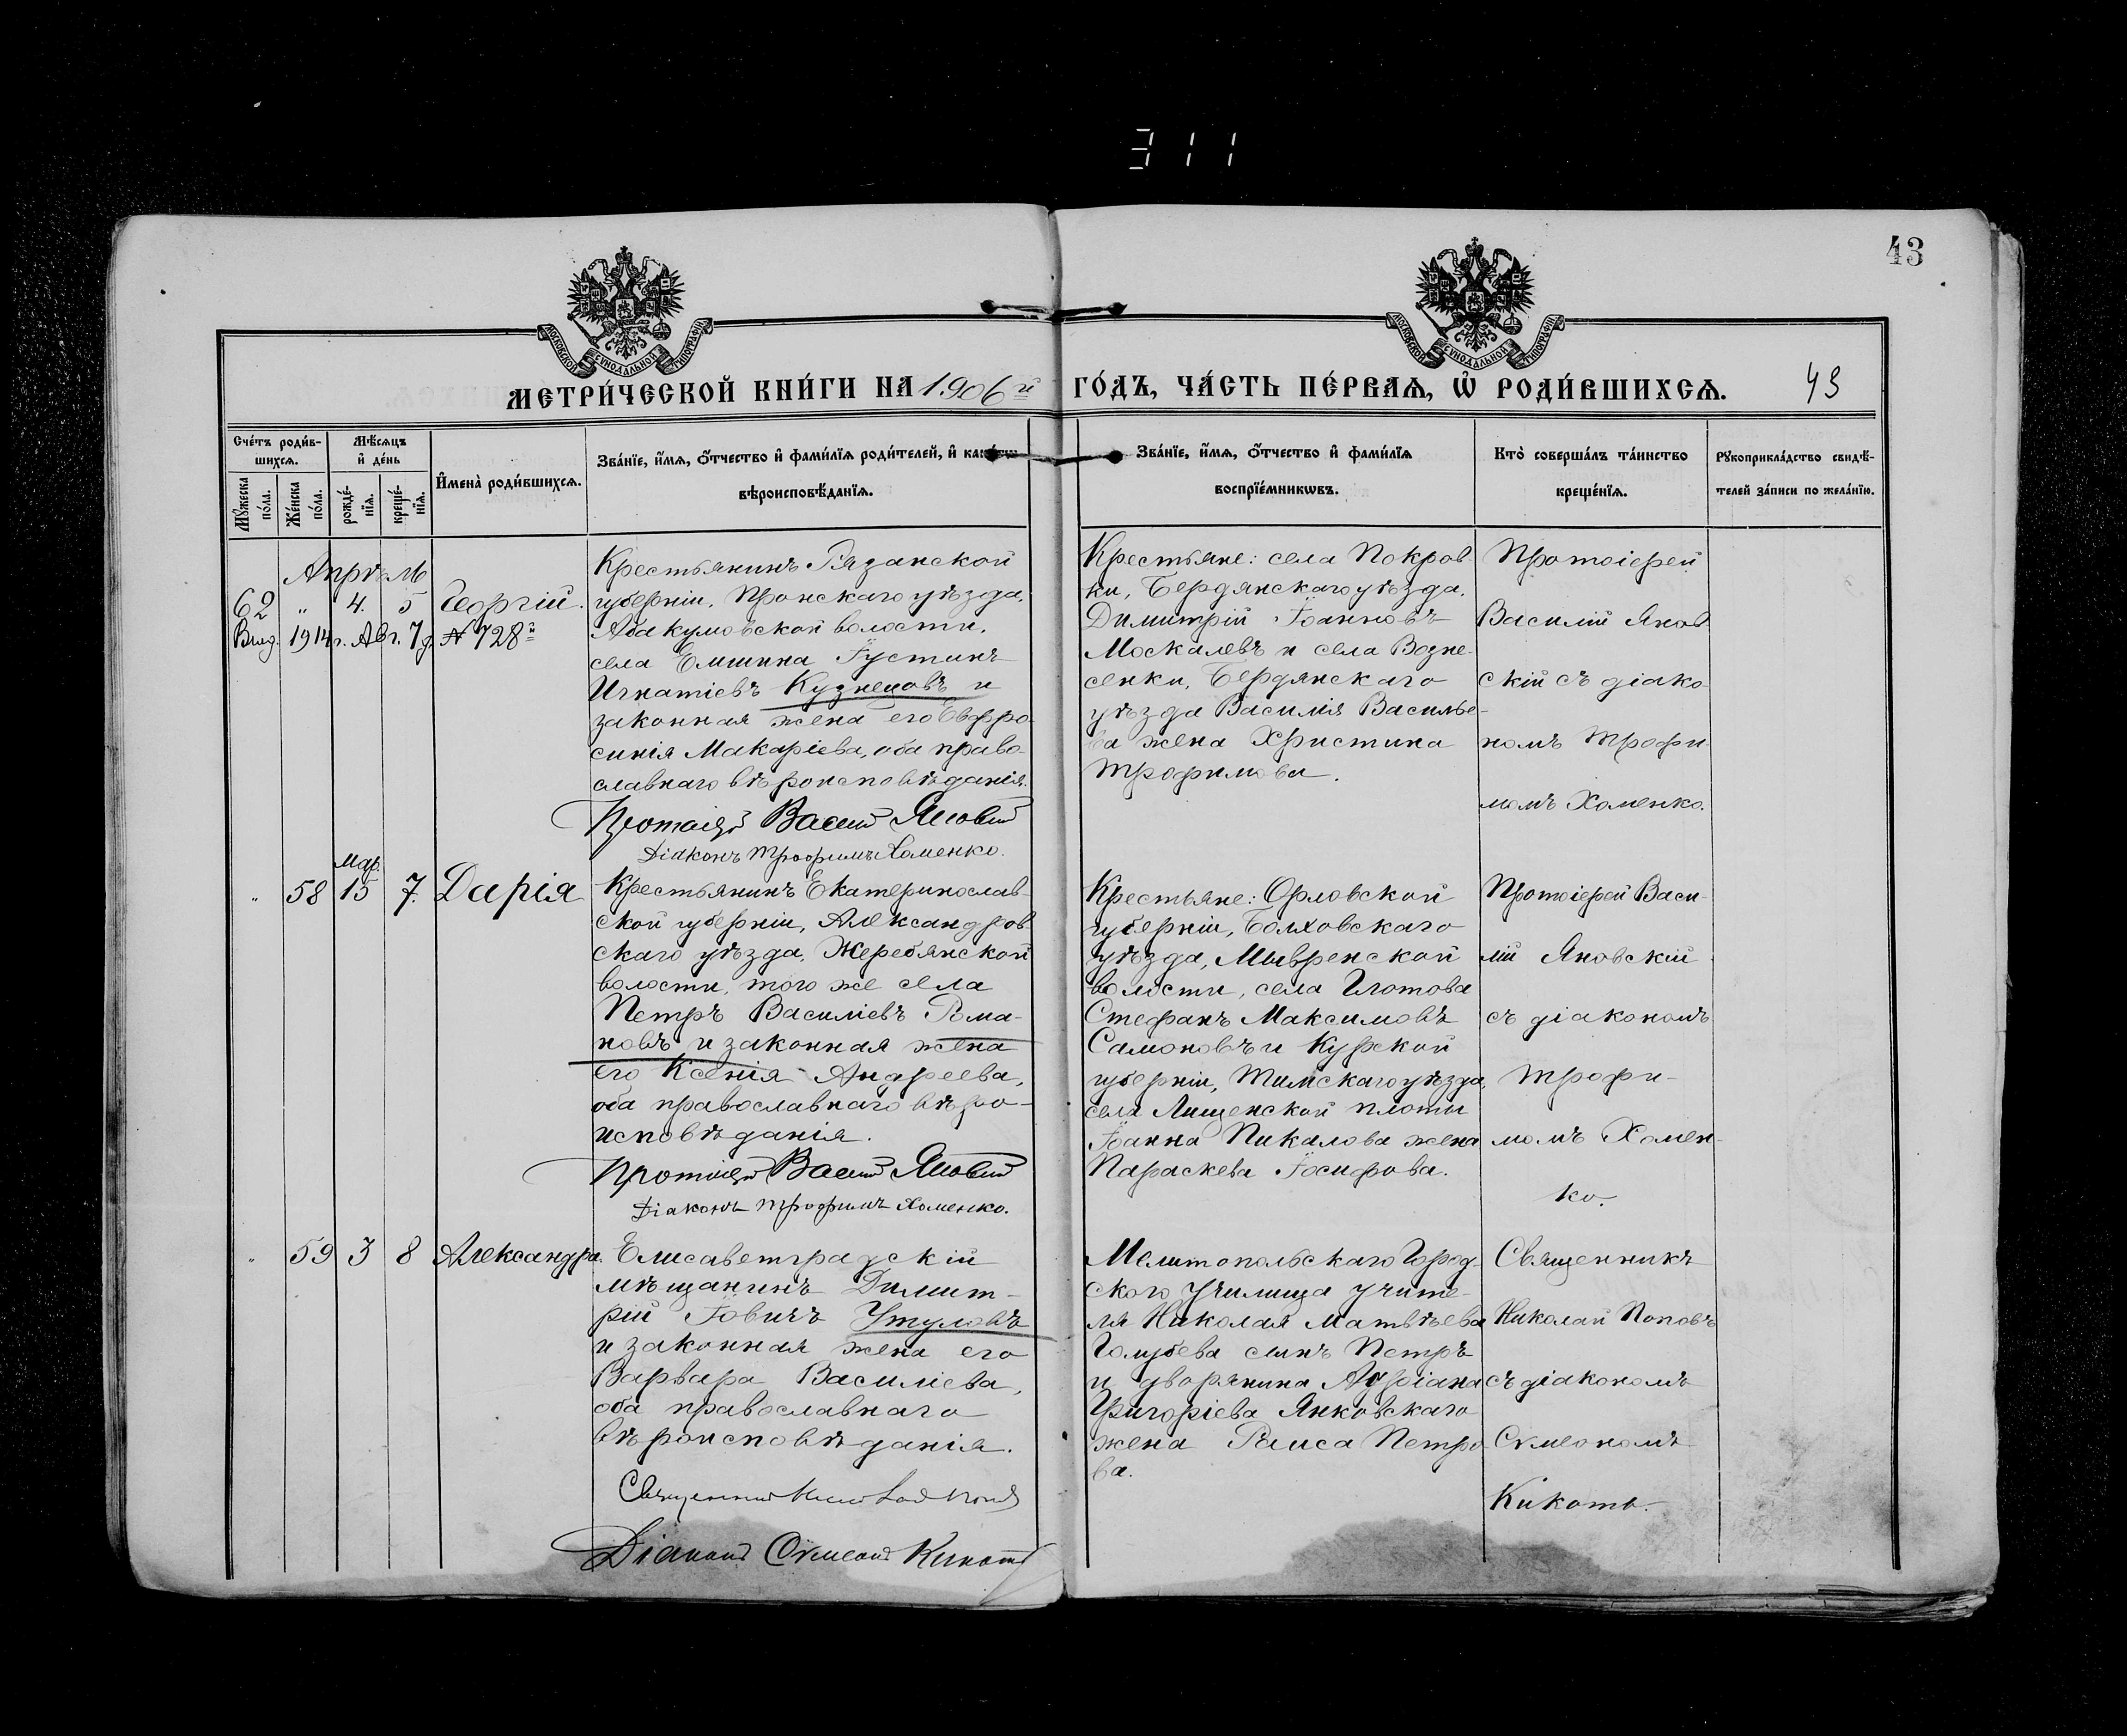 311
43
МОСКОВСКОЙ СѴНОДАЛЬНОЙ ТИПОГРАФІИ
МОСКОВСКОЙ СѴНОДАЛЬНОЙ ТИПОГРАФІИ
МЕТРИ́ЧЕСКОЙ КНИ́ГИ НА 1906й ГО́ДЪ, ЧА́СТЬ ПЕ́РВАѦ, Ѡ҆ РОДИ́ВШИХСѦ. 43
Сче́тъ роди́в-
шихсѧ.
Мꙋ́жеска
по́ла.
Же́нска
по́ла.
Мѣ́сѧцъ
и҆ де́нь
рожде́-
нїѧ.
креще́-
нїѧ.
И҆мена̀ роди́вшихсѧ.
Зва́нїе, и҆́мѧ, ѻ҆́тчество и҆ фами́лїѧ роди́телей, и҆
вѣроисповѣ́данїѧ.
Зва́нїе, и҆́мѧ, ѻ҆́тчество и҆ фами́лїѧ
воспрїе́мникѡвъ.
Кто̀ соверша́лъ та́инство
креще́нїѧ.
Рꙋкоприкла́дство свидѣ́-
телей за́писи по жела́нїю.
Апрѣль
62 " 4. 5 Георгій.
Выд. 1914 г. Авг. 7 д. № 728й
Крестьянинъ Рязанской
губерніи, Пронскаго уѣзда,
Абакумовской волости,
села Ѳустинъ
Игнатіевъ Кузнецовъ и
законная жена его Евфро
синія Макаріева, оба право-
славнаго вѣроисповѣданія.
Протоіерей Василій Яновскій
Діаконъ Трофимъ Хоменко.
Крестьяне: села Покров-
ки, Бердянскаго уѣзда,
Димитрій Іоанновъ
Москалевъ и села Возне-
сенки, Бердянскаго
уѣзда Василія Василье-
ва жена Христина
Трофимова.
Протоіерей
Василій Янов
скій съ діако-
номъ Трофи
момъ Хоменко.
" 58 Мар. 15 7. Дарія
Крестьянинъ Екатеринослав-
ской губерніи, Александров
скаго уѣзда, Жеребянской
волости, того же села
Петръ Василіевъ Рома-
новъ и законная жена
его Ксенія Андреева,
оба православнаго вѣро-
исповѣданія.
Протоіерей Василій Яновскій
Діаконъ Трофимъ Хоменко.
Крестьяне: Орловской
губерніи, Болховскаго
уѣзда,
волости, села Глотова
Стефанъ Максимовъ
Самоновъ и Курской
губерніи, Тимскаго уѣзда,
села Лищенской плоты
Іоанна Пикалова жена
Параскева Іосифова.
Протоіерей Васи-
лій Яновскій
съ діакономъ
Трофи-
момъ Хомен-
ко.
" 59 3 8 Александра.
Елисаветградскій
мѣщанинъ Димит-
рій Іовичъ Утуловъ
и законная жена его
Варвара Василіева,
оба православнаго
вѣроисповѣданія.
Священникъ Николай Поповъ
Діаконъ Сѵмеонъ Кикоть
Мелитопольскаго Город-
ского Училища учите-
ля Николая Матвѣева
Голубева сынъ Петръ
и дворянина Адріана
Григоріева Янковскаго
жена Раиса Петро
ва.
Священникъ
Николай Поповъ
съ діакономъ
Сѵмеономъ
Кикоть.